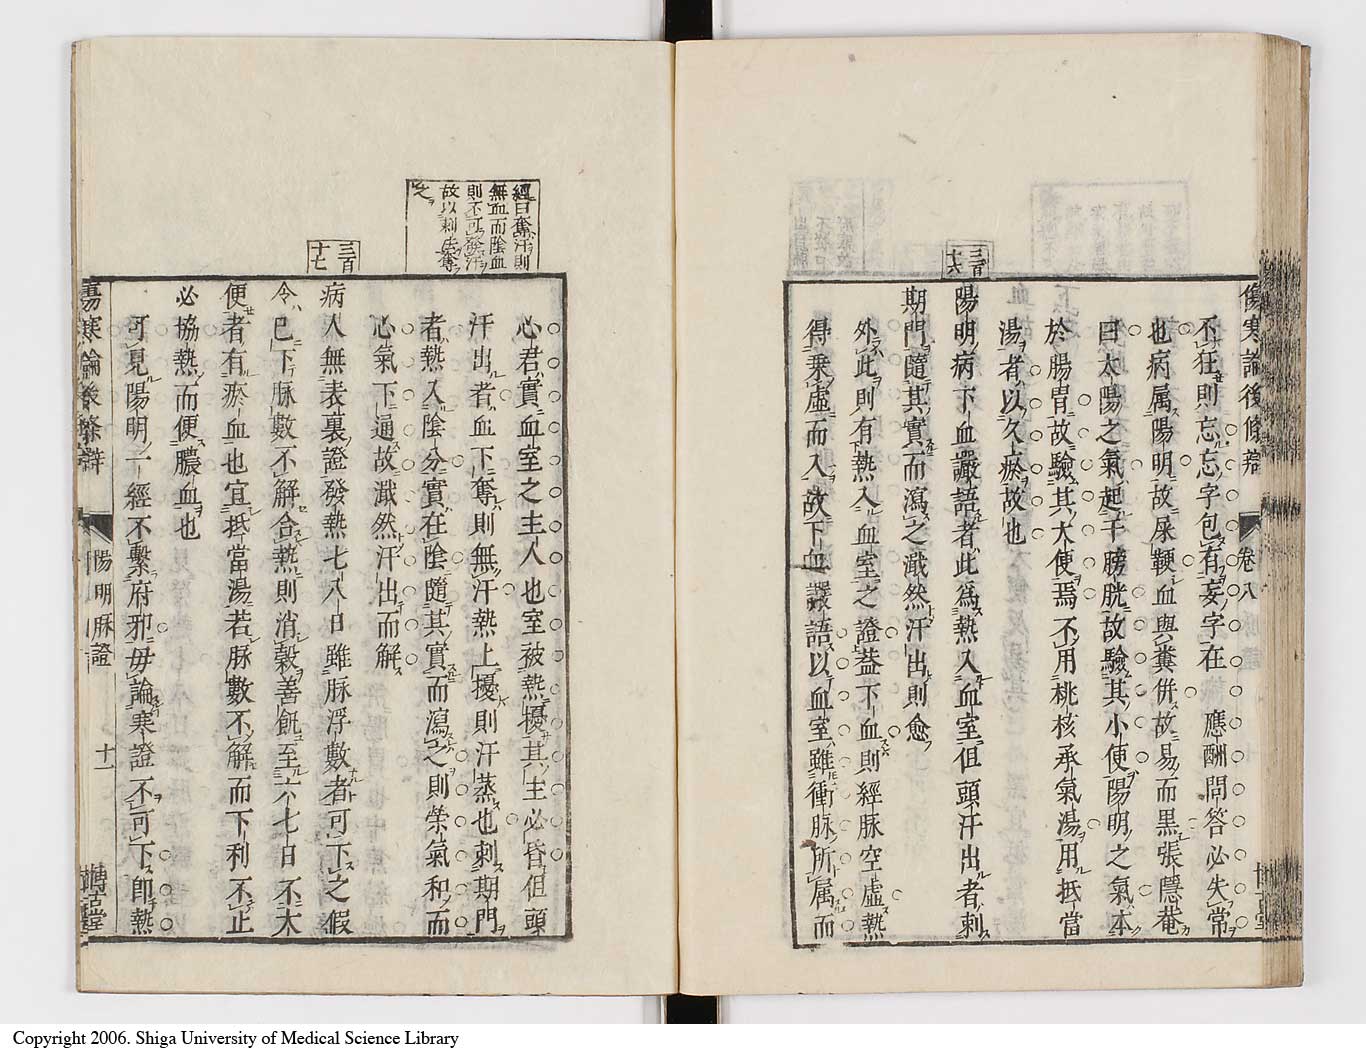 傷寒論後條辨
卷八
不狂則忘忘字包有妄字在 應酬問答必失常
也病属陽明故尿鞕血與糞併故易而黒張隱菴
曰太陽之氣起于膀胱故驗其小便陽明之氣本
於腸胃故驗其大便焉不用桃核承氣湯用抵當
湯者以久瘀故也
三百十六
陽明病下血讝語者此爲熱入血室但頭汗出者刺
期門隨其實而瀉之濈然汗出則愈
外此則有熱入血室之證葢下血則經脉空虛熱
得乗虛而入故下血讝語以血室雖衝脉所属而
經曰奪汗則
無血而陰血
則不可發汗
故以刺法奪
之
心君實血室之主人也室被熱擾其主必昏但頭
汗出者血下奪則無汗熱上擾則汗蒸也刺期門
者熱入陰分實在陰隨其實而瀉之則榮氣和而
心氣下通故濈然汗出而解
三百十七
病人無表裏證發熱七八日雖脉浮數者可下之假
令已下脉數不解合熱則消穀善飢至六七日不大
便者有瘀血也宜抵當湯若脉數不解而下利不止
必協熱而便膿血也
可見陽明一經不繫府邪毋論寒證不可下卽熱
傷寒論後條辨
陽明脉證
十一
博古堂
Copyright 2006. Shiga University of Medical Science Library